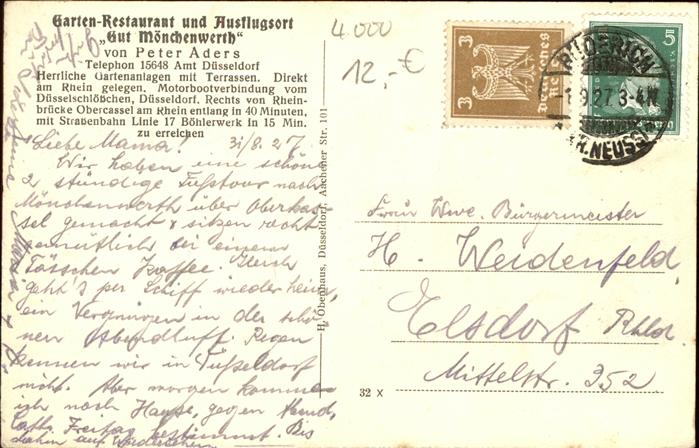 Garten-Restaurant und Ausflugsort
„Gut Mönchenwerth“
von Peter Aders
Telephon 15648 Amt Düsseldorf
Herrliche Gartenanlagen mit Terrassen. Direkt
am Rhein gelegen. Motorbootverbindung vom
Düsselschlößchen, Düsseldorf. Rechts von Rhein-
brücke Obercassel am Rhein entlang in 40 Minuten,
mit Straßenbahn Linie 17 Böhlerwerk in 15 Min.
zu erreichen
Liebe Mama! 31/8. 27.
Wir haben eine schöne
2 stündige Fußtour nach
Mönchenwerth über Oberkas-
sel gemacht & sitzen recht
gemütlich bei einem
Tässchen Kaffee. Gleich
geht's per Schiff wieder heim,
ein Vergnügen in der schö-
nen Abendluft. Regen
kennen wir in Düsseldorf
nicht. Aber morgen komme
ich nach Hause, gegen Abend,
Freitag bestimmt. Bis
dahin auf Wiedersehen
H. Obenhaus, Düsseldorf, Aachener Str. 101
4.000
12,- €
3 3
Deutsches Reich
5
BÜDERICH
9.27. 3-4N.
KR. NEUSS
Frau Wwe. Bürgermeister
H. Weidenfeld
Elsdorf Rhld.
Mittelstr. 352
32 X